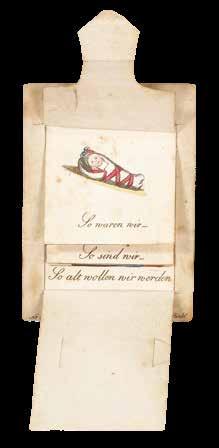 So waren wir_
So sind wir_
So alt wollen wir werden